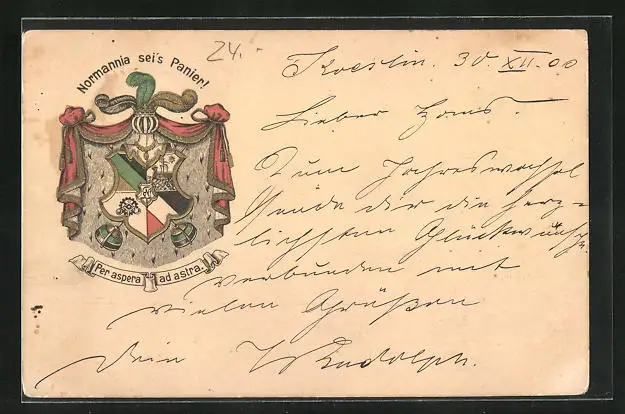 Normannia sei's Panier!
24.-
Koeslin. 30. XII. 00
Lieber Hans.
Zum Jahreswechsel
sende dir die herz-
lichsten Glückwünsche
verbunden mit
vielen Grüßen
Dein W Rudolph.
Per aspera ad astra.